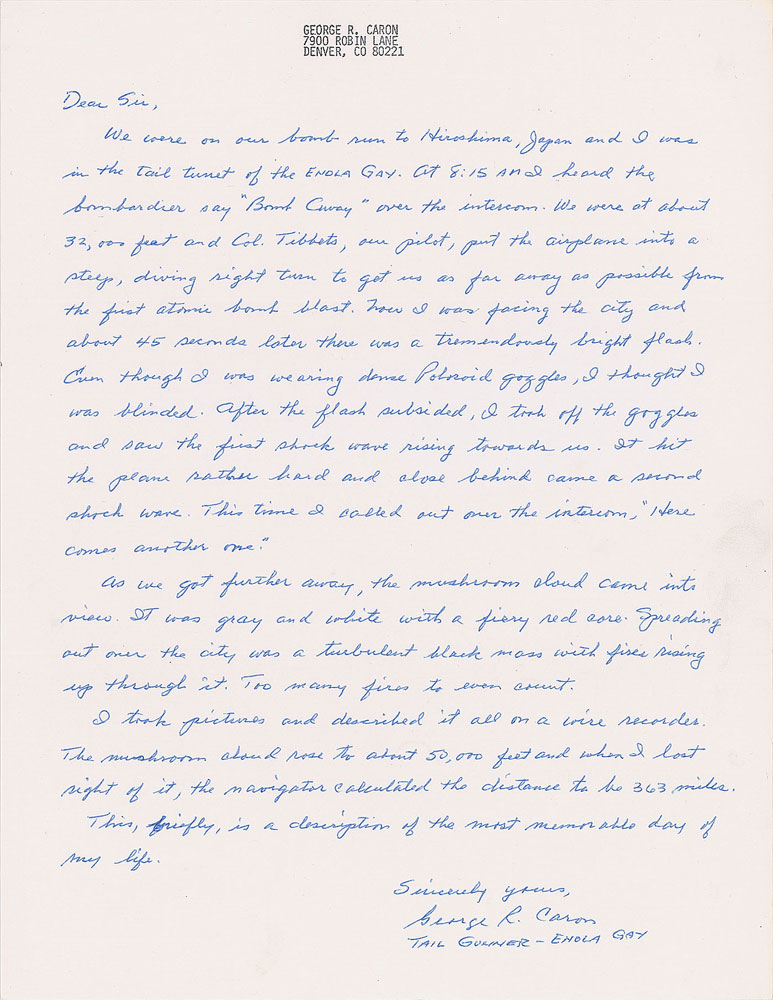 GEORGE R. CARON
7900 ROBIN LANE
DENVER, CO 80221
Dear Sir,
We were on our bomb run to Hiroshima, Japan and I was
in the tail turret of the ENOLA GAY. At 8:15 AM I heard the
bombardier say "Bomb Away" over the intercom. We were at about
32,000 feet and Col. Tibbets, our pilot, put the airplane into a
steep, diving right turn to get us as far away as possible from
the first atomic bomb blast. Now I was facing the city and
about 45 seconds later there was a tremendously bright flash.
Even though I was wearing dense Polaroid goggles, I thought I
was blinded. After the flash subsided, I took off the goggles
and saw the first shock wave rising towards us. It hit
the plane rather hard and close behind came a second
shock wave. This time I called out over the intercom, "Here
comes another one."
As we got further away, the mushroom cloud came into
view. It was gray and white with a fiery red core. Spreading
out over the city was a turbulent black mass with fires rising
up through it. Too many fires to even count.
I took pictures and described it all on a wire recorder.
The mushroom cloud rose to about 50,000 feet and when I lost
sight of it, the navigator calculated the distance to be 363 miles.
This, briefly, is a description of the most memorable day of
my life.
Sincerely yours,
George R. Caron
TAIL GUNNER - ENOLA GAY